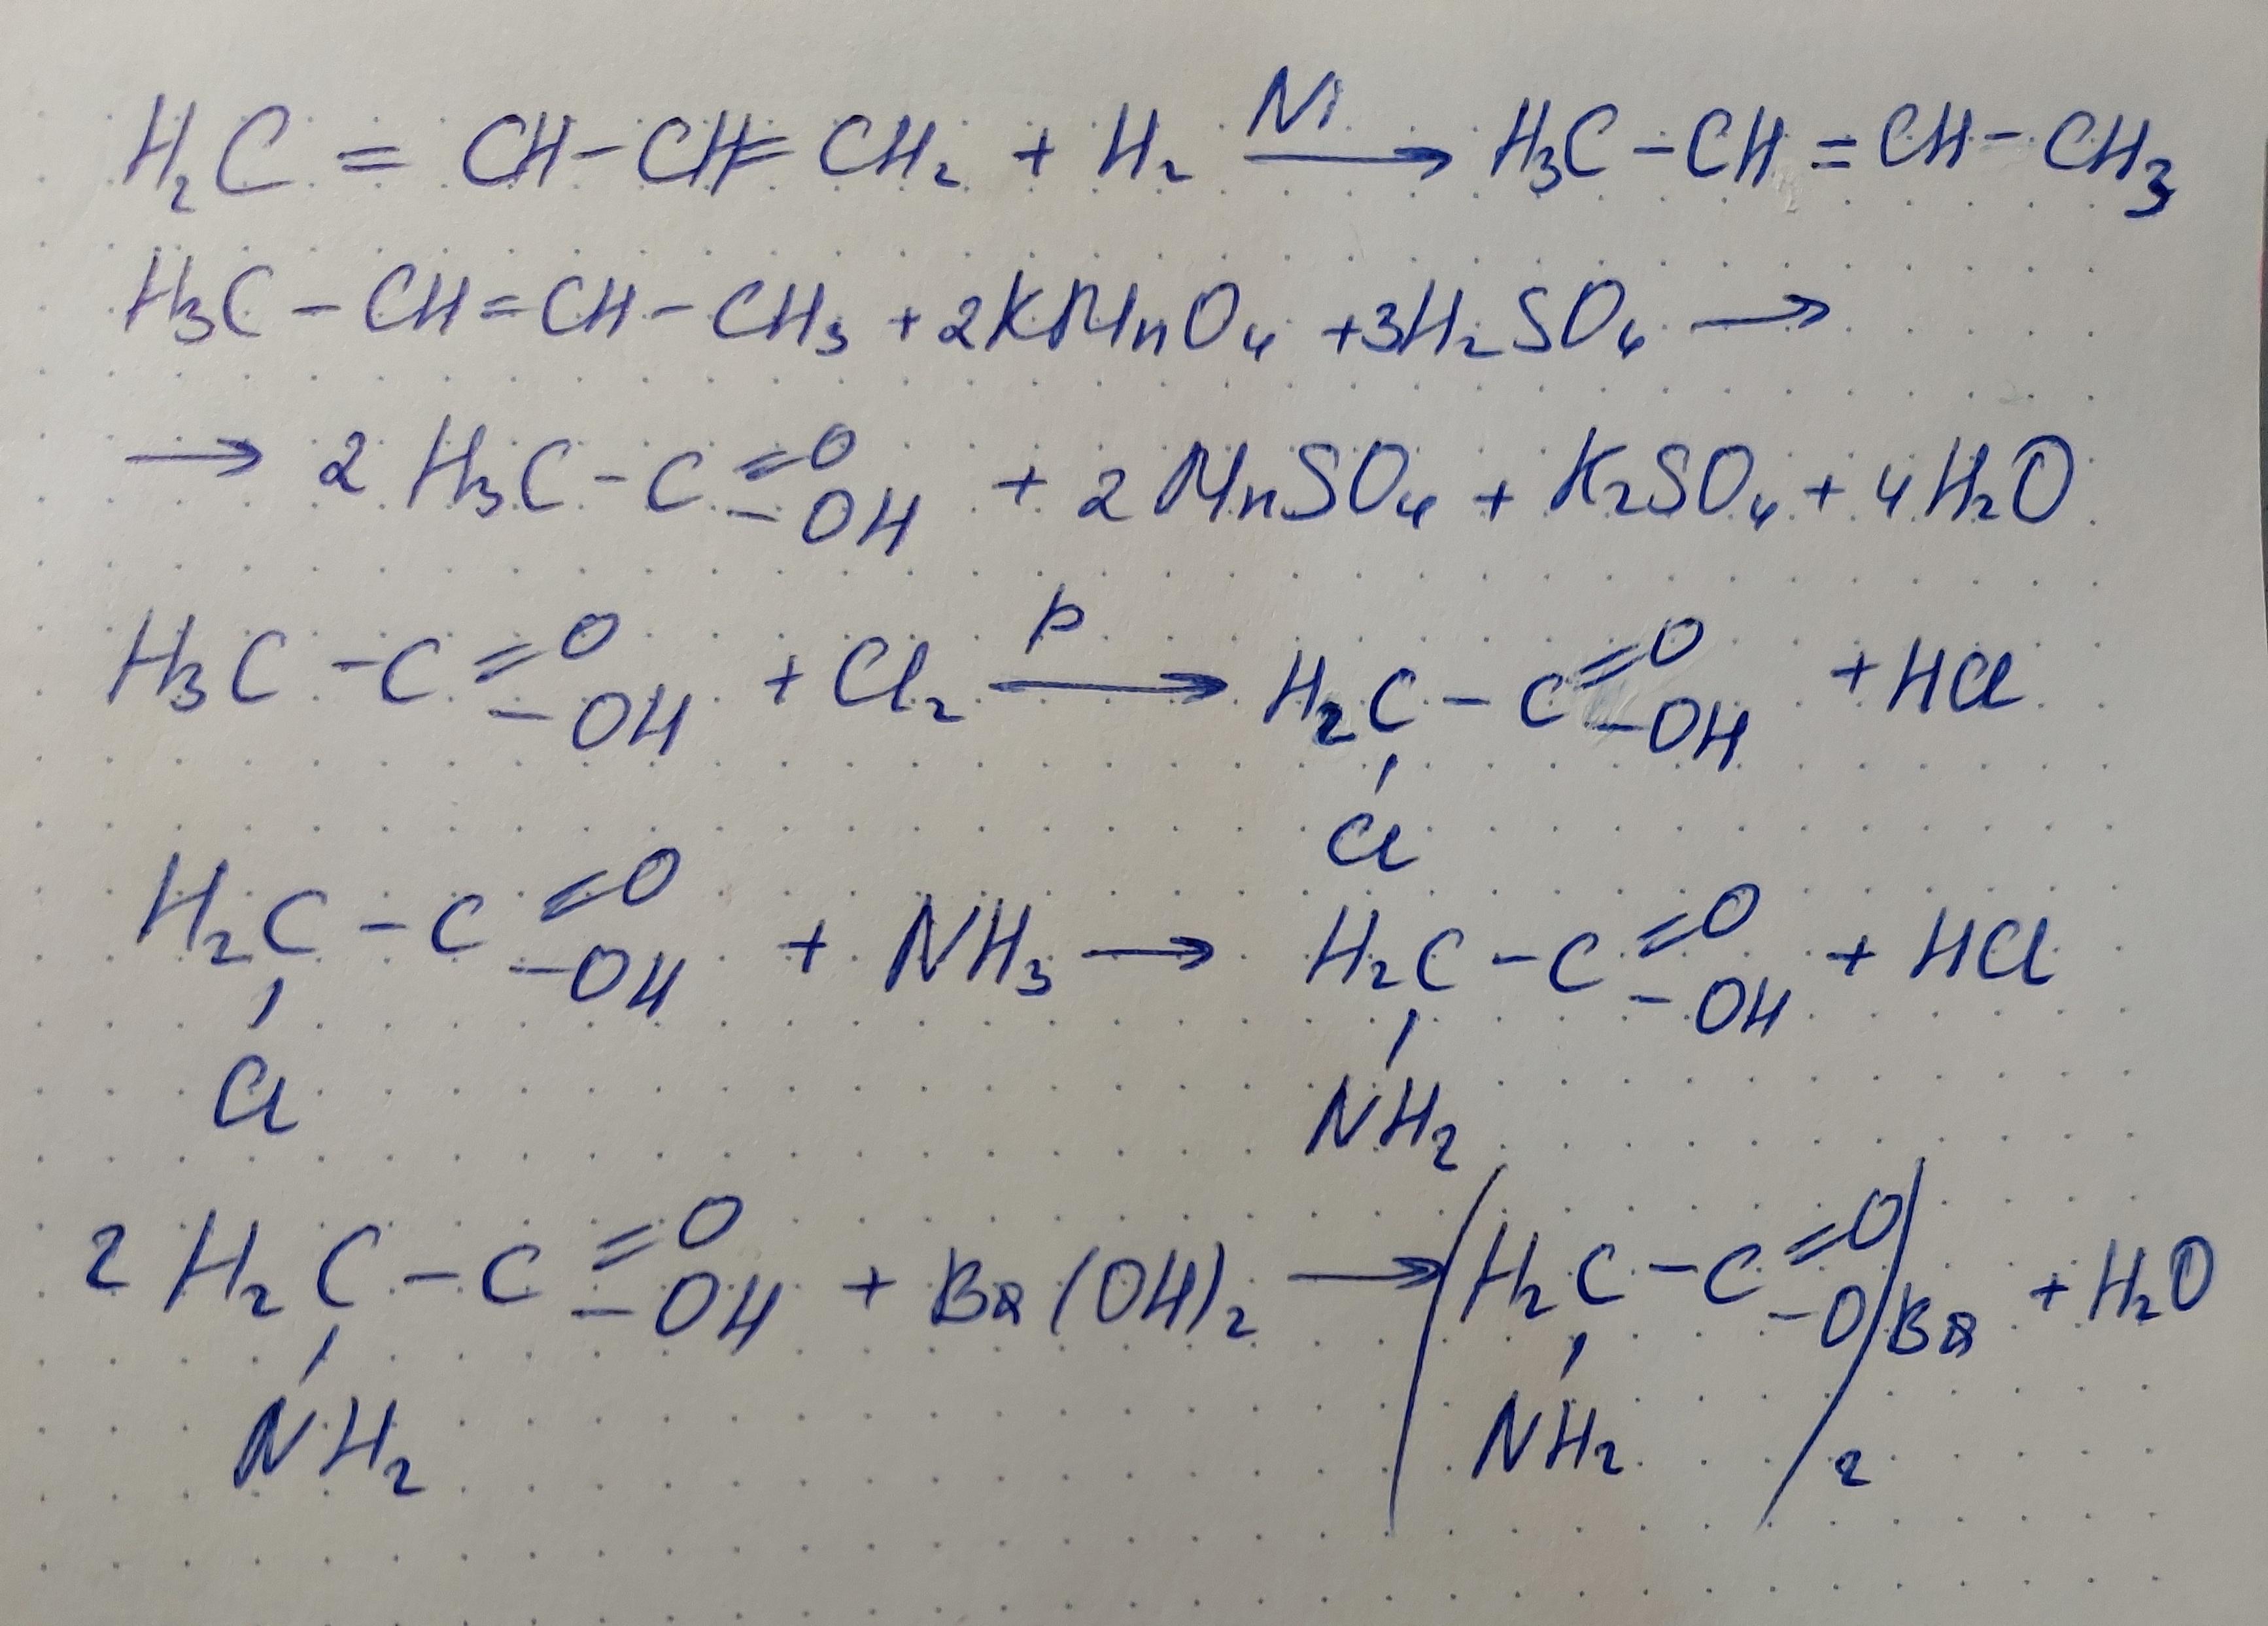 H₂C = CH - CH = CH₂ + H₂ Ni → H₃C - CH = CH - CH₃
H₃C - CH = CH - CH₃ + 2KMnO₄ + 3H₂SO₄ →
→ 2 H₃C - C =O -OH + 2 MnSO₄ + K₂SO₄ + 4H₂O
H₃C - C =O -OH + Cl₂ p → H₂C - C =O -OH + HCl
Cl
H₂C - C =O -OH + NH₃ → H₂C - C =O -OH + HCl
Cl NH₂
2 H₂C - C =O -OH + Ba(OH)₂ → (H₂C - C =O -O)Ba + H₂O
NH₂ NH₂ 2